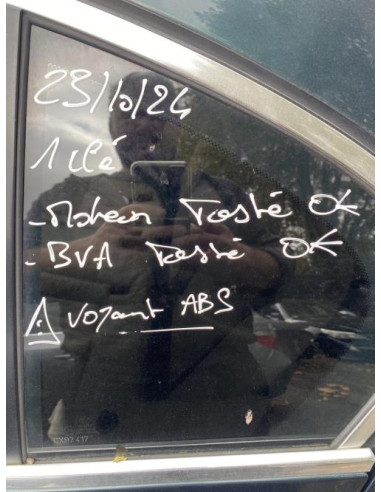 23/10/24
1 clé
- Moteur Testé OK
- BVA Testé OK
⚠ voyant ABS